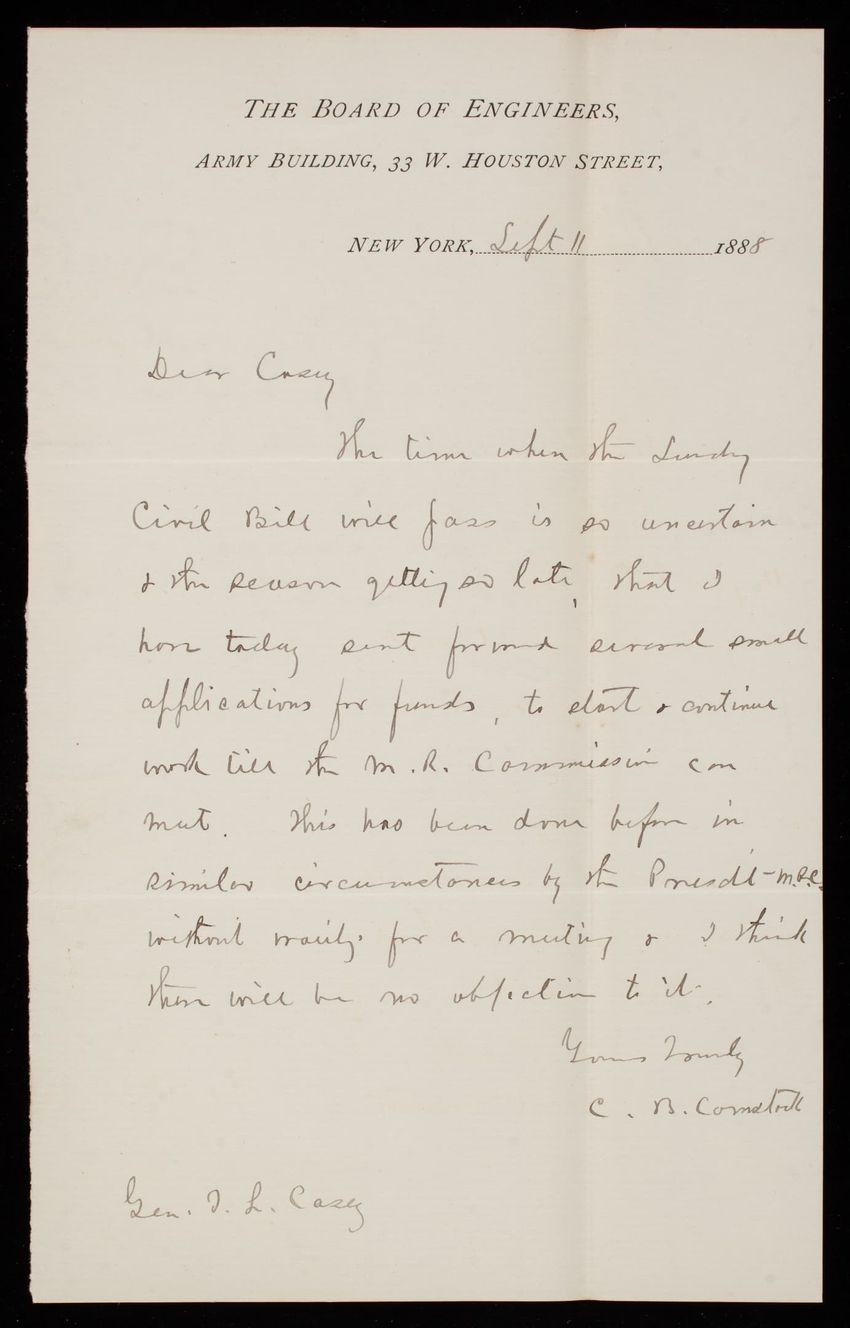 THE BOARD OF ENGINEERS,
ARMY BUILDING, 33 W. HOUSTON STREET,
NEW YORK, Sept 11 1888
Dear Casey
The time when the Sundry
Civil Bill will pass is so uncertain
& the season getting so late, that I
have today sent forward several small
applications for funds, to start & continue
work till the M. R. Commission can
meet. This has been done before in
similar circumstances by the Presdt - M.R.C.
without waiting for a meeting & I think
there will be no objection to it.
Yours Truly
C. B. Comstock
Gen. T. L. Casey